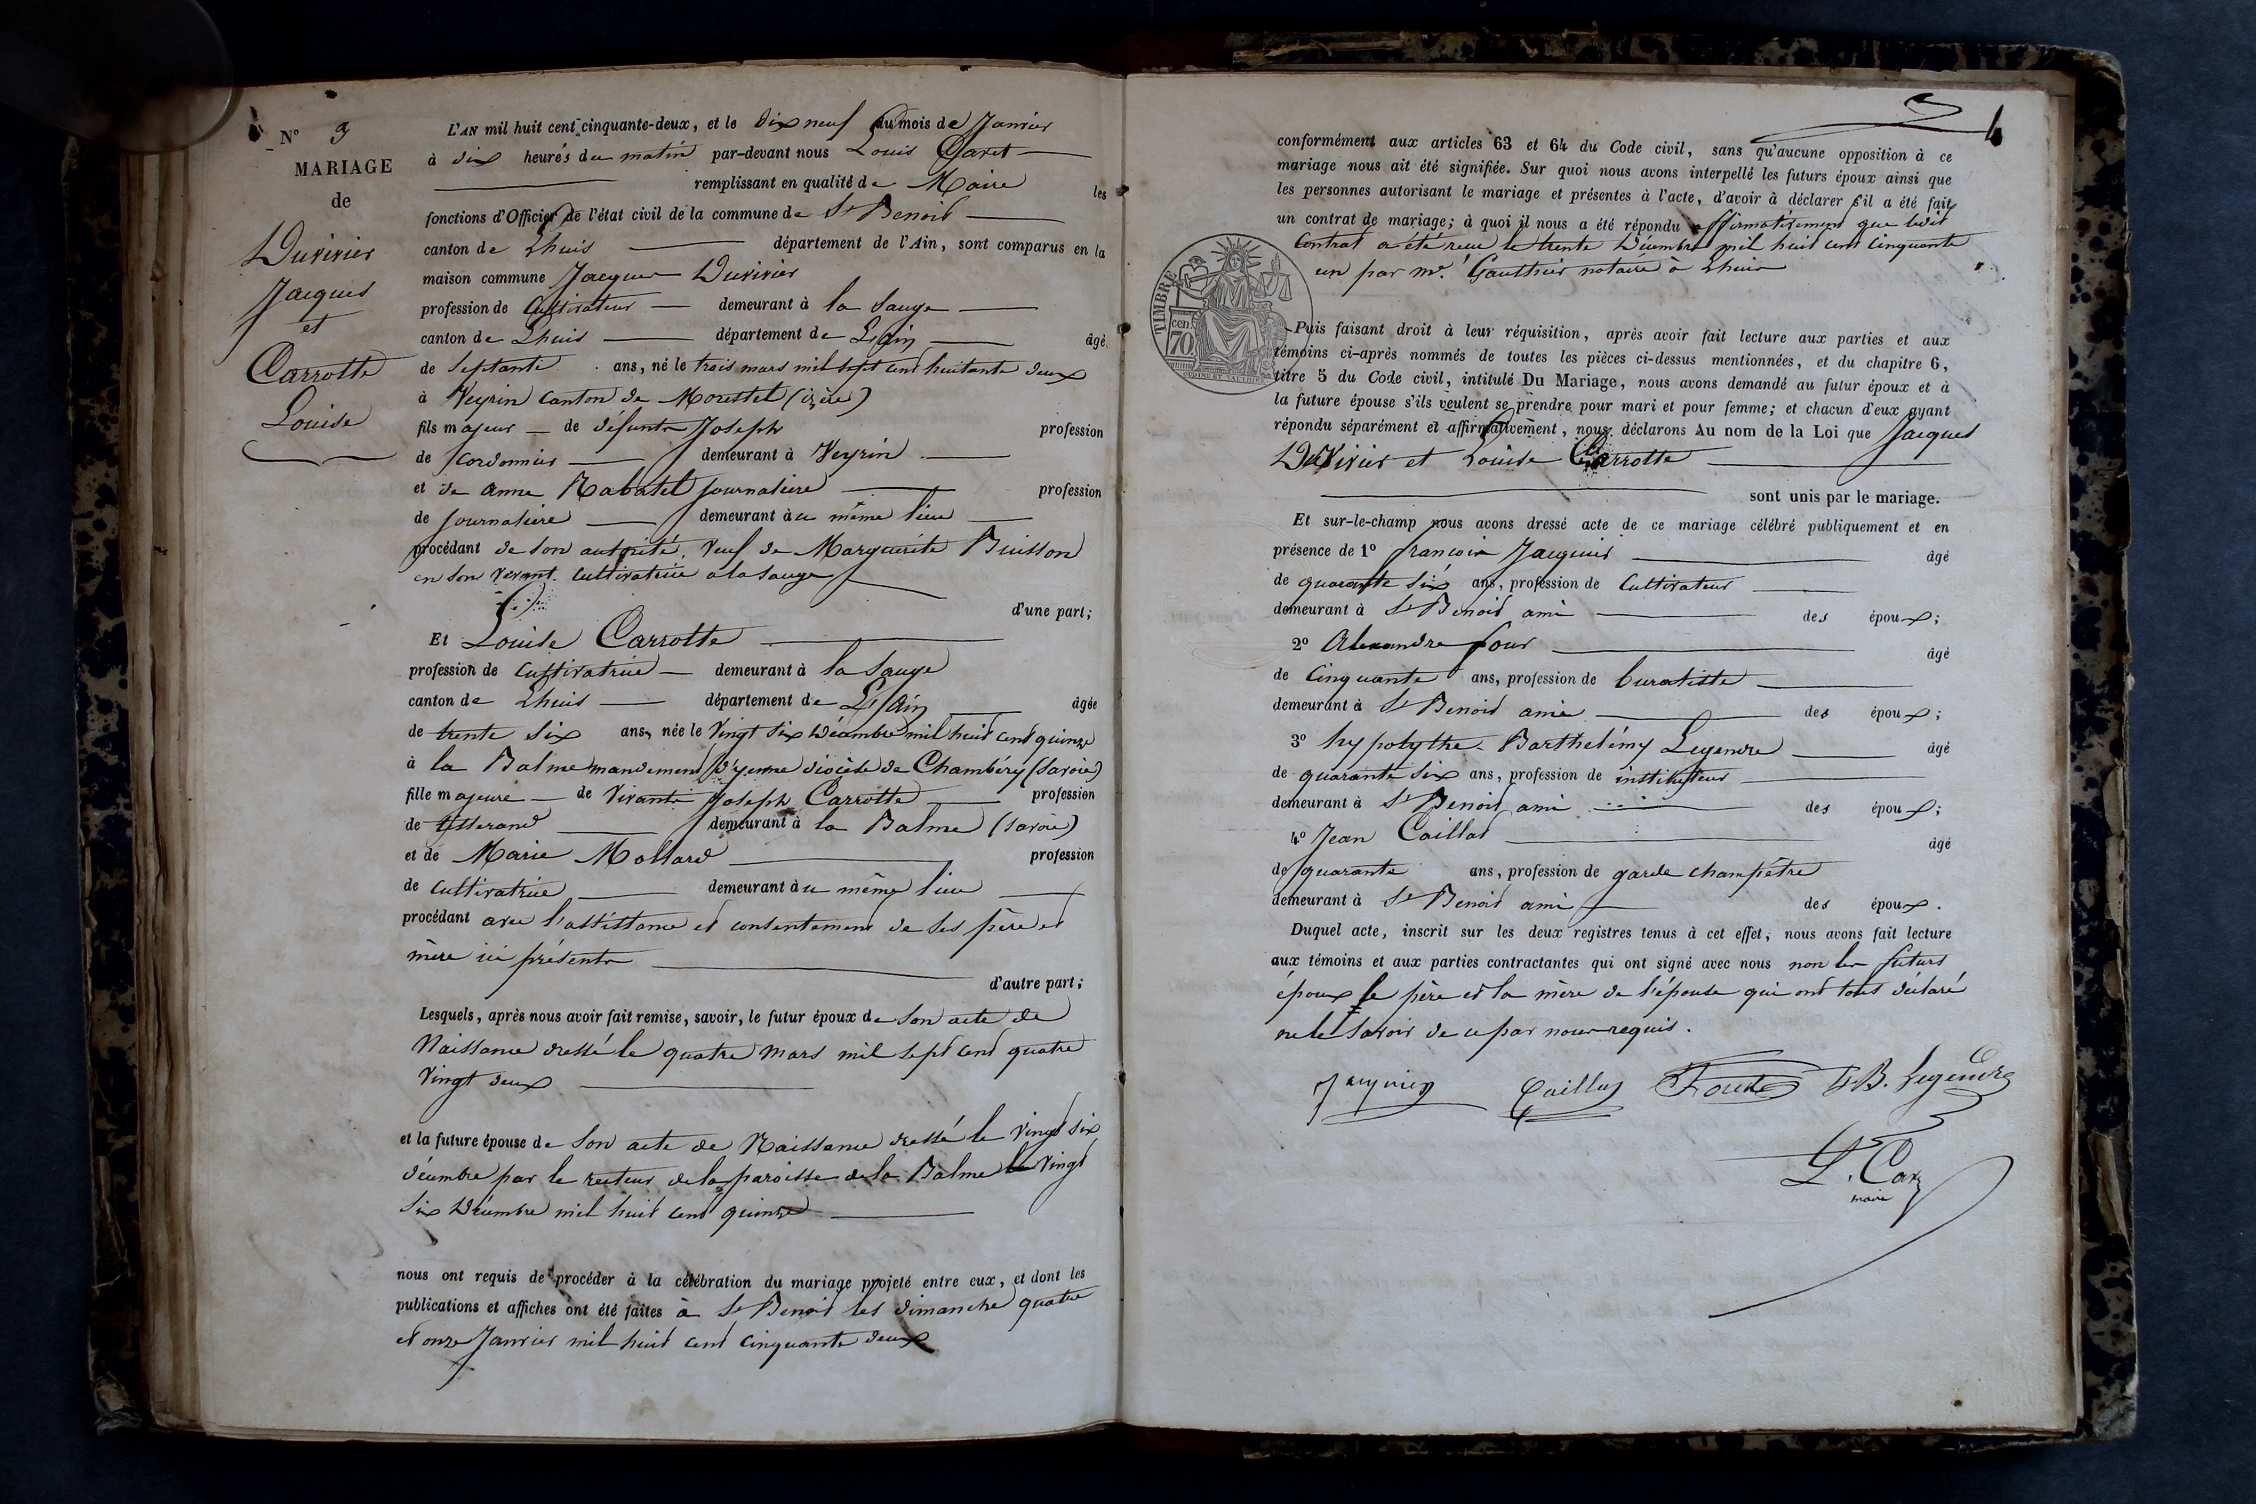 N° 3
MARIAGE
de
Duvivier
Jacques
et
Carrotte
Louise
L'AN mil huit cent cinquante-deux, et le dix neuf du mois de Janvier
à dix heures du matin par-devant nous Louis Caret
remplissant en qualité de Maire les
fonctions d'Officier de l'état civil de la commune de St Benoit
canton de Lhuis département de l'Ain, sont comparus en la
maison commune Jacques Duvivier
profession de Cultivateur demeurant à la Sauge
canton de Lhuis département de L'ain âgé
de Septante ans, né le trois mars mil sept cent huitante deux
à Veyrin canton de Morestel (isère)
fils majeur de défunts Joseph profession
de Cordonnier demeurant à Veyrin
et de anne Rabatel journalière profession
de journalière demeurant au même lieu
procédant de son autorité, veuf de Marguerite Buisson
en son vivant cultivatrice a la Sauge
d'une part;
Et Louise Carrotte
profession de Cultivatrice demeurant à la Sauge
canton de Lhuis département de L'ain âgée
de trente six ans, née le Vingt six Décembre mil huit cent quinze
à la Balme mandement d'yenne diocèse de Chambéry (Savoie)
fille majeure de Vivants Joseph Carrotte profession
de tisserand demeurant à la Balme (Savoie)
et de Marie Mollard profession
de cultivatrice demeurant au même lieu
procédant avec l'assistance et consentement de ses père et
mère ici présents
d'autre part;
Lesquels, après nous avoir fait remise, savoir, le futur époux de son acte de
Naissance dressé le quatre mars mil sept cent quatre
Vingt deux
et la future épouse de son acte de Naissance dressé le Vingt six
décembre par le recteur de la paroisse de la Balme le Vingt
Six Décembre mil huit cent quinze
nous ont requis de procéder à la célébration du mariage projeté entre eux, et dont les
publications et affiches ont été faites à St Benoit les dimanche quatre
et onze Janvier mil huit cent cinquante deux
4
conformément aux articles 63 et 64 du Code civil, sans qu'aucune opposition à ce
mariage nous ait été signifiée. Sur quoi nous avons interpellé les futurs époux ainsi que
les personnes autorisant le mariage et présentes à l'acte, d'avoir à déclarer s'il a été fait
un contrat de mariage; à quoi il nous a été répondu affirmativement que ledit
Contrat a été reçu le trente Décembre mil huit cent cinquante
un par me. Gauthier notaire à Lhuis
TIMBRE
cen
70
Puis faisant droit à leur réquisition, après avoir fait lecture aux parties et aux
témoins ci-après nommés de toutes les pièces ci-dessus mentionnées, et du chapitre 6,
titre 5 du Code civil, intitulé Du Mariage, nous avons demandé au futur époux et à
la future épouse s'ils veulent se prendre pour mari et pour femme; et chacun d'eux ayant
répondu séparément et affirmativement, nous déclarons Au nom de la Loi que Jacques
Duvivier et Louise Carrotte
sont unis par le mariage.
Et sur-le-champ nous avons dressé acte de ce mariage célébré publiquement et en
présence de 1° françois Jacquier âgé
de quarante six ans, profession de Cultivateur
demeurant à St Benoit ami des époux;
2° Alexandre four âgé
de Cinquante ans, profession de buraliste
demeurant à St Benoit ami des époux;
3° hypolythe Barthelémy Legendre âgé
de quarante six ans, profession de instituteur
demeurant à St Benoit ami des époux;
4° Jean Caillat âgé
de quarante ans, profession de garde champêtre
demeurant à St Benoit ami des époux.
Duquel acte, inscrit sur les deux registres tenus à cet effet, nous avons fait lecture
aux témoins et aux parties contractantes qui ont signé avec nous non les futurs
époux le père et la mère de l'épouse qui ont tous déclaré
ne le savoir de ce par nous requis.
Jacquier Caillat H B. Legendre
L. Caret
maire